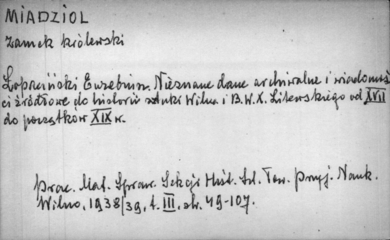 MIADZIOL
Zamek królewski
Łopaciński Euzebiusz. Nieznane dane archiwalne i wiadomoś
ci źródłowe do historii sztuki Wilna i B.W.X. Litewskiego od XVII
do początków XIX w.
Prac. Mat. Spraw. Sekcji Hist. Szt. Tow. Przyj. Nauk.
Wilno, 1938/39, t. III, str. 49-107.